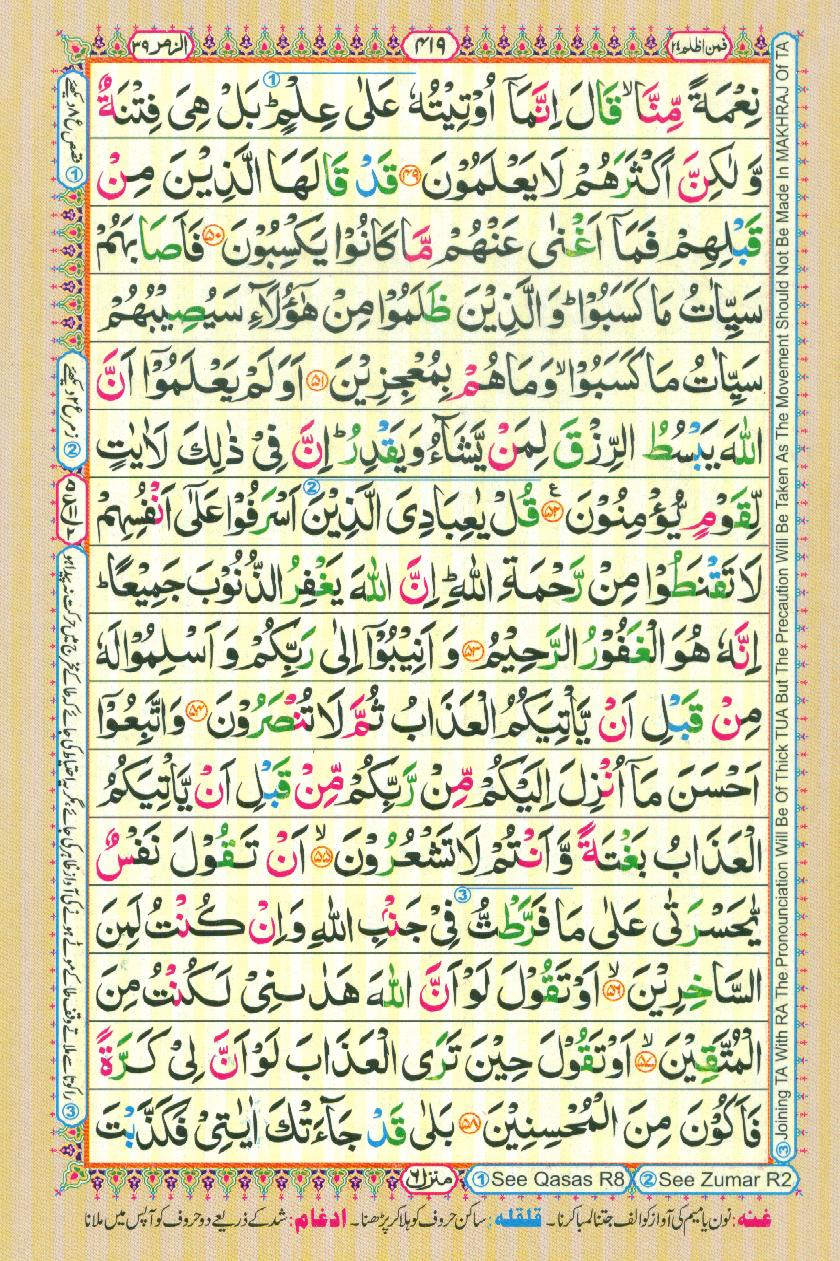 فمن اظلم ٢٤
٤١٩
الزمر ٣٩
نِعْمَةً مِّنَّا ۙ قَالَ اِنَّمَاۤ اُوْتِيْتُهٗ عَلٰى عِلْمٍ ؕ بَلْ هِىَ فِتْنَةٌ
وَّ لٰكِنَّ اَكْثَرَهُمْ لَا يَعْلَمُوْنَ ﴿٤٩﴾ قَدْ قَالَهَا الَّذِيْنَ مِنْ
قَبْلِهِمْ فَمَاۤ اَغْنٰى عَنْهُمْ مَّا كَانُوْا يَكْسِبُوْنَ ﴿٥٠﴾ فَاَصَابَهُمْ
سَيِّاٰتُ مَا كَسَبُوْا ؕ وَ الَّذِيْنَ ظَلَمُوْا مِنْ هٰٓؤُلَآءِ سَيُصِيْبُهُمْ
سَيِّاٰتُ مَا كَسَبُوْا ۙ وَ مَا هُمْ بِمُعْجِزِيْنَ ﴿٥١﴾ اَوَلَمْ يَعْلَمُوْۤا اَنَّ
اللّٰهَ يَبْسُطُ الرِّزْقَ لِمَنْ يَّشَآءُ وَيَقْدِرُ ؕ اِنَّ فِىْ ذٰلِكَ لَاٰيٰتٍ
لِّقَوْمٍ يُّؤْمِنُوْنَ ﴿٥٢﴾ ع قُلْ يٰعِبَادِىَ الَّذِيْنَ اَسْرَفُوْا عَلٰٓى اَنْفُسِهِمْ
لَا تَقْنَطُوْا مِنْ رَّحْمَةِ اللّٰهِ ؕ اِنَّ اللّٰهَ يَغْفِرُ الذُّنُوْبَ جَمِيْعًا ؕ
اِنَّهٗ هُوَ الْغَفُوْرُ الرَّحِيْمُ ﴿٥٣﴾ وَ اَنِيْبُوْۤا اِلٰى رَبِّكُمْ وَ اَسْلِمُوْا لَهٗ
مِنْ قَبْلِ اَنْ يَّاْتِيَكُمُ الْعَذَابُ ثُمَّ لَا تُنْصَرُوْنَ ﴿٥٤﴾ وَاتَّبِعُوْۤا
اَحْسَنَ مَاۤ اُنْزِلَ اِلَيْكُمْ مِّنْ رَّبِّكُمْ مِّنْ قَبْلِ اَنْ يَّاْتِيَكُمُ
الْعَذَابُ بَغْتَةً وَّ اَنْتُمْ لَا تَشْعُرُوْنَ ۙ﴿٥٥﴾ اَنْ تَقُوْلَ نَفْسٌ
يّٰحَسْرَتٰى عَلٰى مَا فَرَّطْتُّ فِىْ جَنْۢبِ اللّٰهِ وَاِنْ كُنْتُ لَمِنَ
السَّاخِرِيْنَ ۙ﴿٥٦﴾ اَوْ تَقُوْلَ لَوْ اَنَّ اللّٰهَ هَدٰىنِىْ لَكُنْتُ مِنَ
الْمُتَّقِيْنَ ۙ﴿٥٧﴾ اَوْ تَقُوْلَ حِيْنَ تَرَى الْعَذَابَ لَوْ اَنَّ لِىْ كَرَّةً
فَاَكُوْنَ مِنَ الْمُحْسِنِيْنَ ﴿٥٨﴾ بَلٰى قَدْ جَآءَتْكَ اٰيٰتِىْ فَكَذَّبْتَ
③ Joining TA With RA The Pronounciation Will Be Of Thick TUA But The Precaution Will Be Taken As The Movement Should Not Be Made In MAKHRAJ Of TA
منزل ٦
① See Qasas R8
② See Zumar R2
غنه: نون یا میم کی آواز کو الف جتنا لمبا کرنا۔ قلقله: ساکن حروف کو ہلا کر پڑھنا۔ ادغام: شد کے ذریعے دو حروف کو آپس میں ملانا